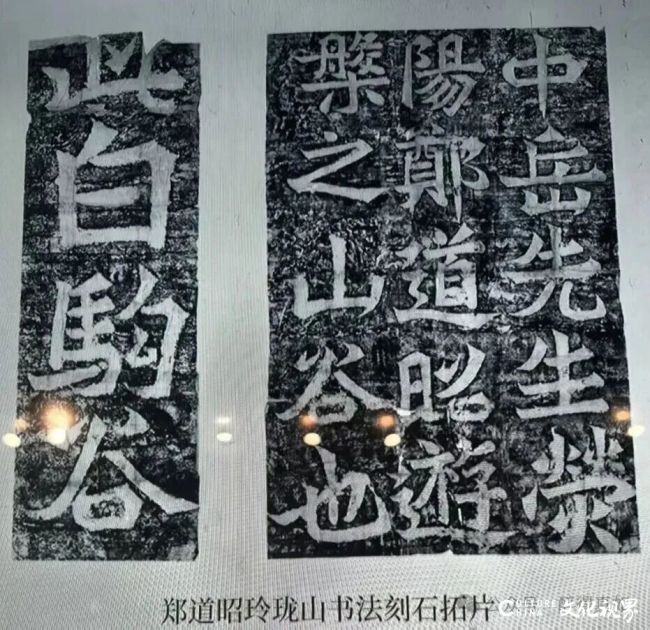 中岳先生熒
陽鄭道昭遊
槃之山谷也
此白駒谷
郑道昭玲珑山书法刻石拓片
CULTURE
CHINA
文化视界